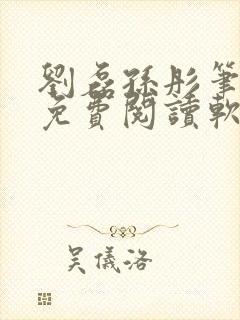 劉磊孫彤筆
免費閱讀軟
吳儀洛